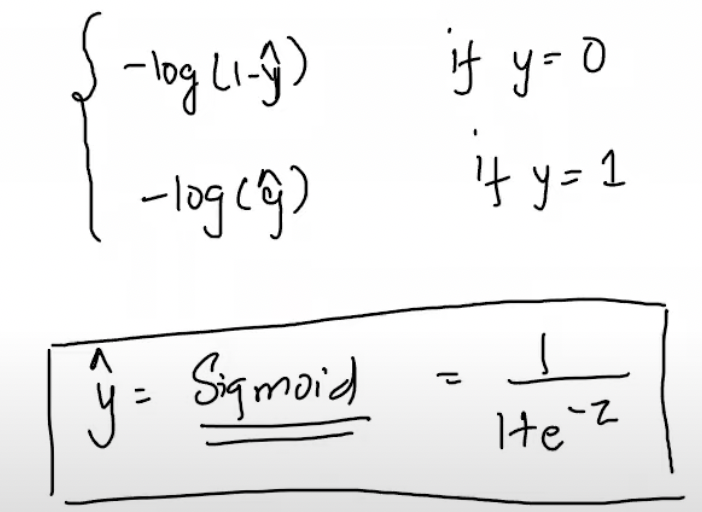 { -log(1-ŷ) if y=0
-log(ŷ) if y=1
ŷ = Sigmoid = 1/(1+e^-z)